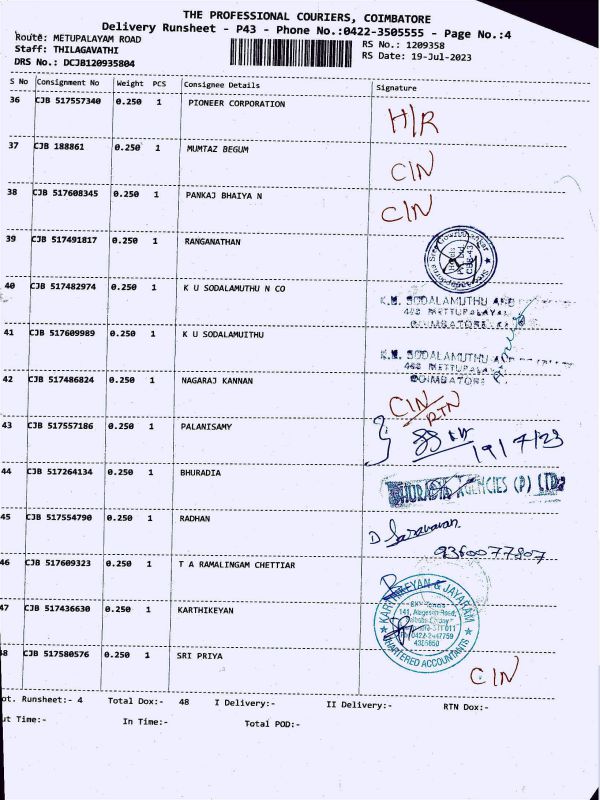 THE PROFESSIONAL COURIERS, COIMBATORE
Delivery Runsheet - P43 - Phone No.:0422-3505555 - Page No.:4
Route: METUPALAYAM ROAD
RS No.: 1209358
Staff: THILAGAVATHI
RS Date: 19-Jul-2023
DRS No.: DCJB120935804
S No Consignment No Weight PCS Consignee Details Signature
36 CJB 517557340 0.250 1 PIONEER CORPORATION H/R
37 CJB 188861 0.250 1 MUMTAZ BEGUM CIN
38 CJB 517608345 0.250 1 PANKAJ BHAIYA N CIN
39 CJB 517491817 0.250 1 RANGANATHAN
40 CJB 517482974 0.250 1 K U SODALAMUTHU N CO
K.U. SODALAMUTHU AND
METTUPALAYAM
COIMBATORE
41 CJB 517609989 0.250 1 K U SODALAMUITHU
K.U. SODALAMUTHU AND
METTUPALAYAM
COIMBATORE
42 CJB 517486824 0.250 1 NAGARAJ KANNAN CIN
RTN
43 CJB 517557186 0.250 1 PALANISAMY
19/7/23
44 CJB 517264134 0.250 1 BHURADIA
BHURADIA AGENCIES (P) LTD
45 CJB 517554790 0.250 1 RADHAN D Saravanan
9360077807
46 CJB 517609323 0.250 1 T A RAMALINGAM CHETTIAR
47 CJB 517436630 0.250 1 KARTHIKEYAN
KARTHIKEYAN & JAYARAM
CHARTERED ACCOUNTANTS
48 CJB 517580576 0.250 1 SRI PRIYA CIN
ot. Runsheet:- 4 Total Dox:- 48 I Delivery:- II Delivery:- RTN Dox:-
ut Time:- In Time:- Total POD:-